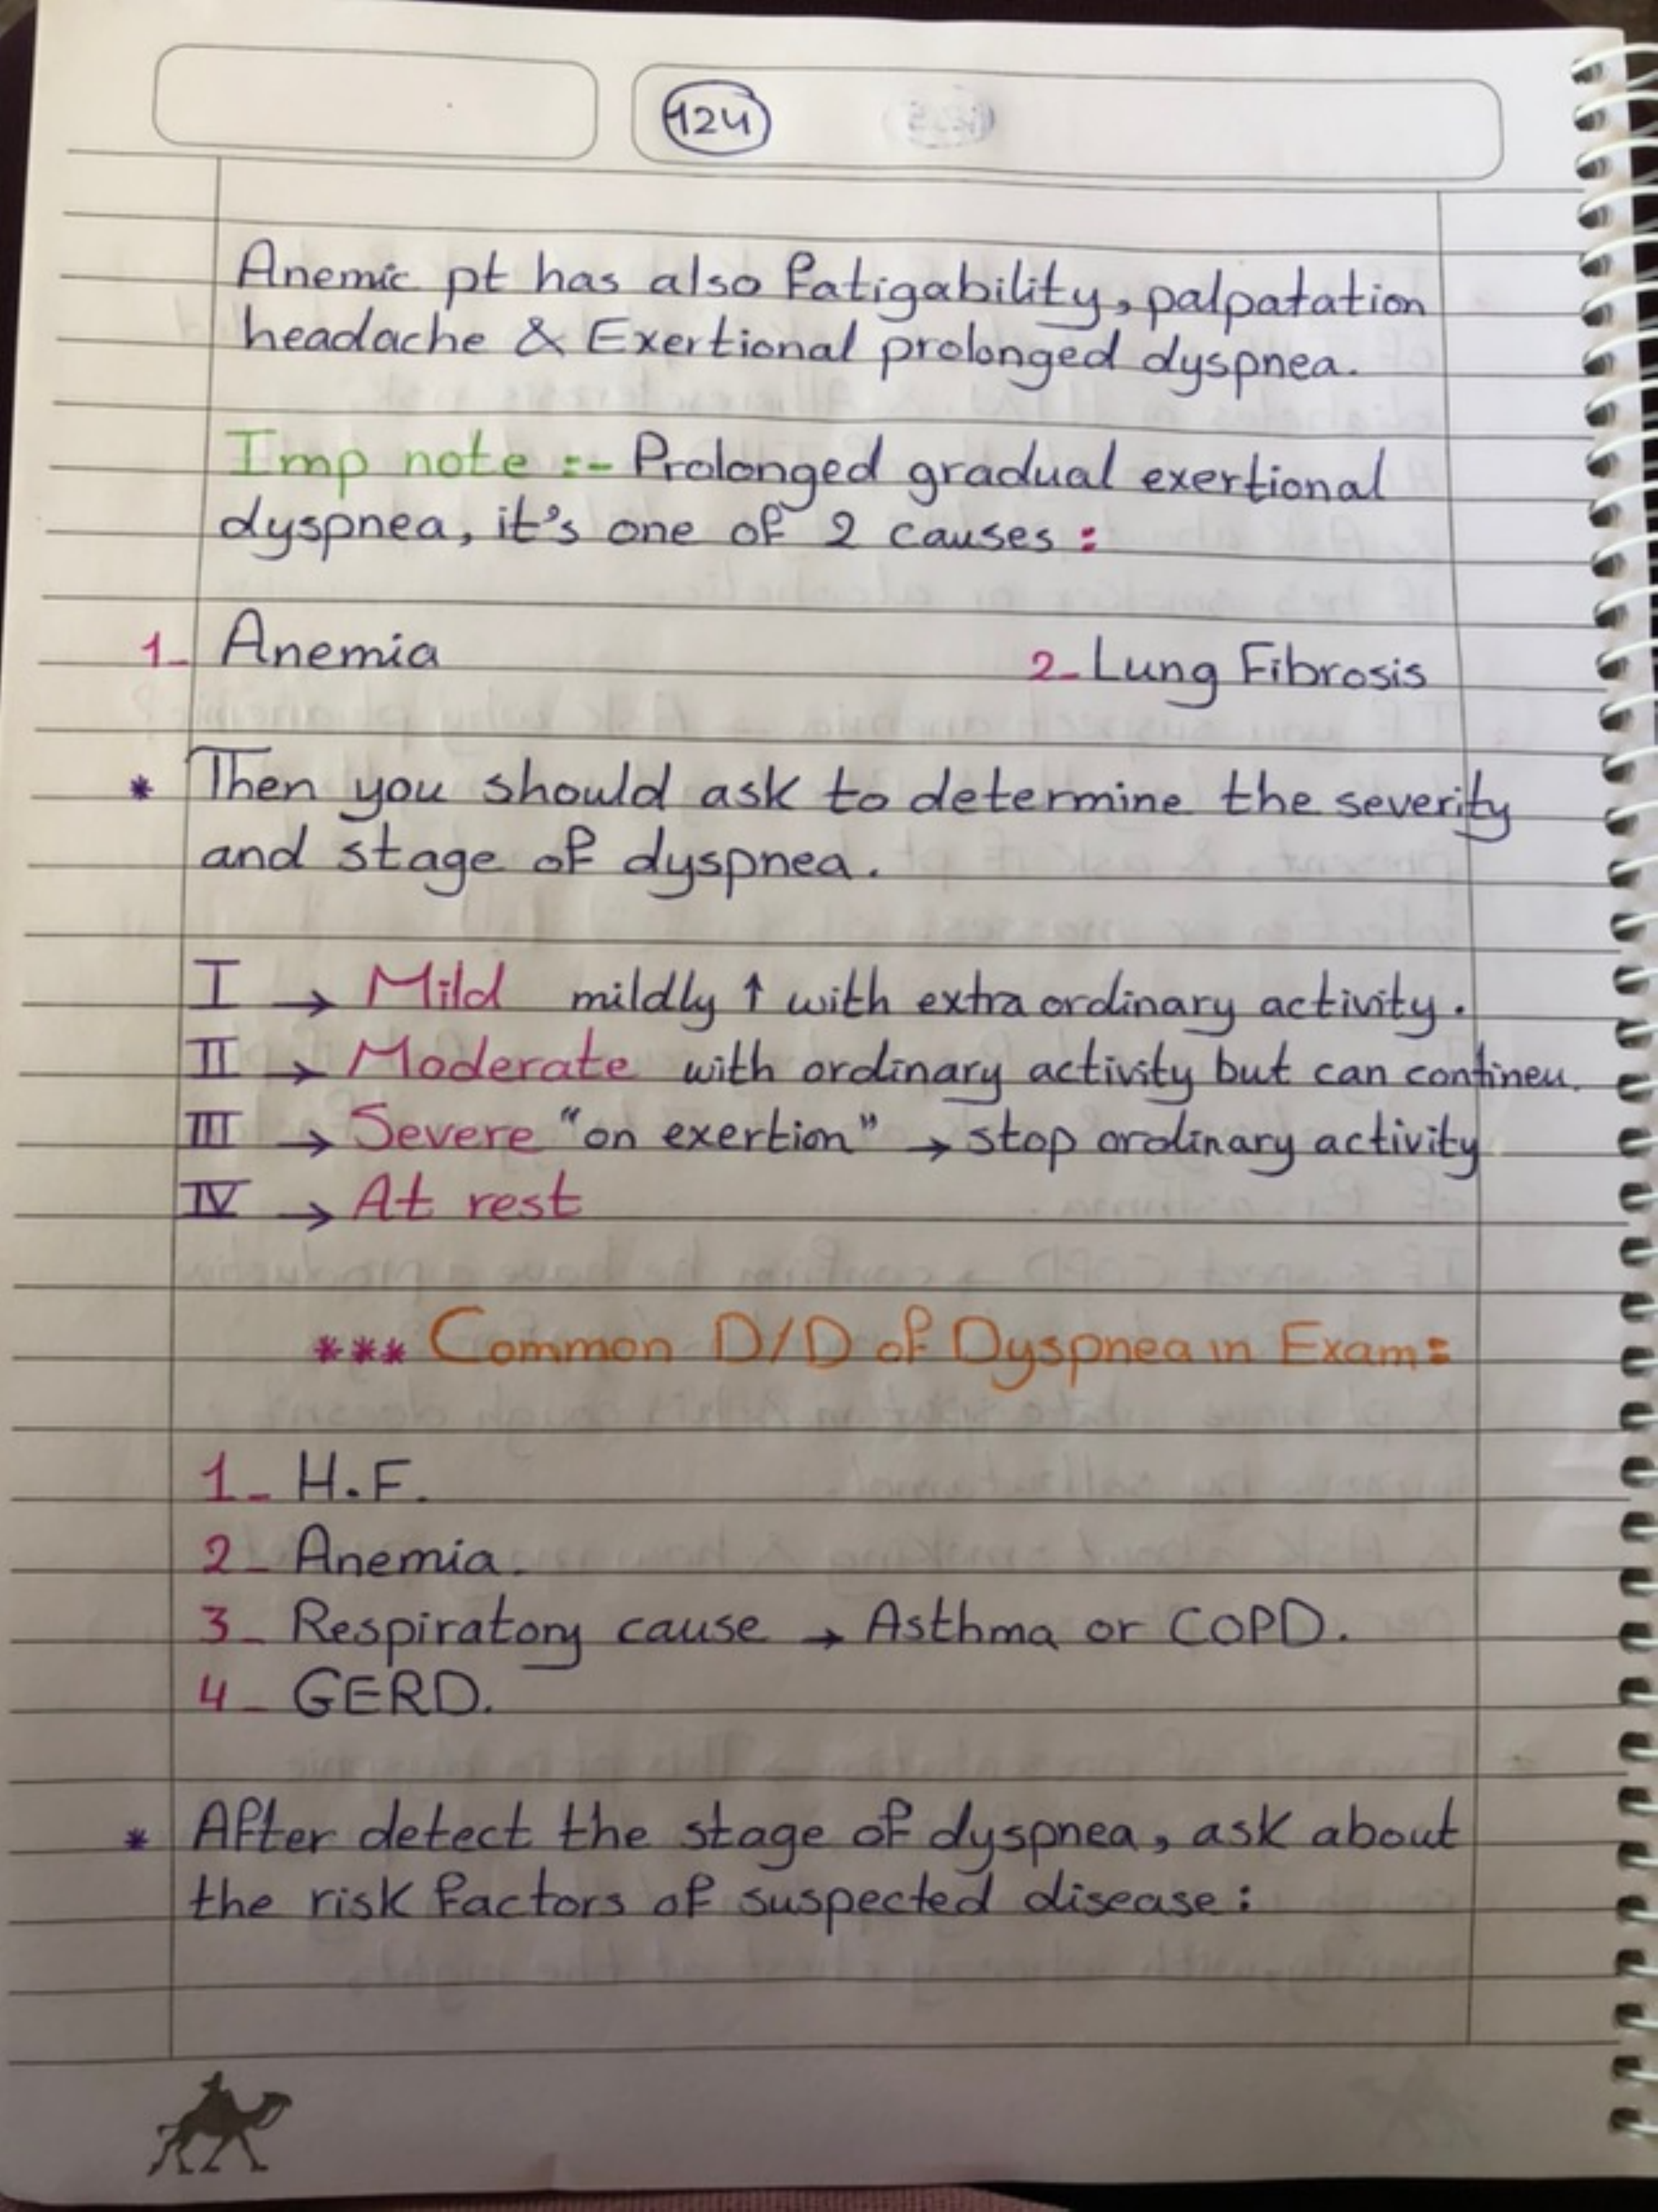 124
Anemic pt has also fatigability, palpatation
headache & Exertional prolonged dyspnea.
Imp note :- Prolonged gradual exertional
dyspnea, it's one of 2 causes :
1- Anemia 2- Lung Fibrosis
* Then you should ask to determine the severity
and stage of dyspnea.
I → Mild mildly ↑ with extra ordinary activity.
II → Moderate with ordinary activity but can contineu.
III → Severe "on exertion" → stop ordinary activity
IV → At rest
*** Common D/D of Dyspnea in Exam:
1- H.F.
2- Anemia.
3- Respiratory cause → Asthma or COPD.
4- GERD.
* After detect the stage of dyspnea, ask about
the risk factors of suspected disease: